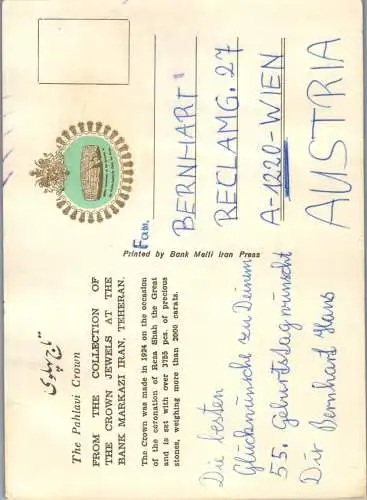 تاج پهلوی
The Pahlavi Crown
FROM THE COLLECTION OF
THE CROWN JEWELS AT THE
BANK MARKAZI IRAN, TEHERAN.
The Crown was made in 1924 on the occasion
of the coronation of Reza Shah the Great
and is set with over 3755 pcs. of precious
stones, weighing more than 2000 carats.
Die besten
Glückwünsche zu Deinem
55. Geburtstag wünscht
Dir Bernhart Hans
Printed by Bank Melli Iran Press
Fam.
BERNHART
RECLAMG. 27
A-1220-WIEN
AUSTRIA